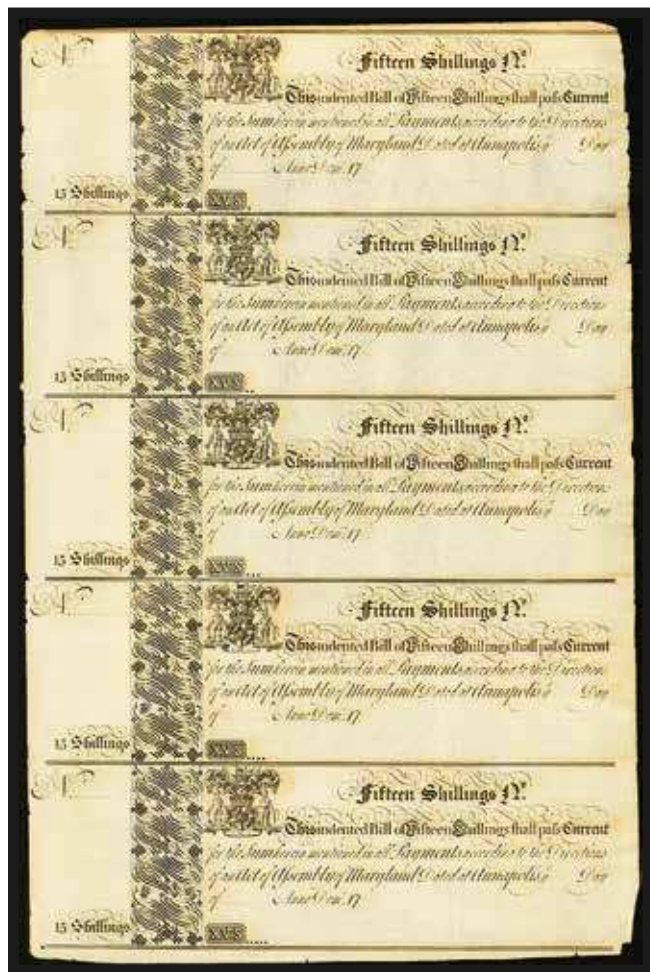 No
Fifteen Shillings No.
This indented Bill of Fifteen Shillings shall pass Current
for the Sum herein mentioned in all Payments according to the Directions
of an Act of Assembly of Maryland Dated at Annapolis ye Day
of Anno Dom. 17
15 Shillings
XV.S
No
Fifteen Shillings No.
This indented Bill of Fifteen Shillings shall pass Current
for the Sum herein mentioned in all Payments according to the Directions
of an Act of Assembly of Maryland Dated at Annapolis ye Day
of Anno Dom. 17
15 Shillings
XV.S
No
Fifteen Shillings No.
This indented Bill of Fifteen Shillings shall pass Current
for the Sum herein mentioned in all Payments according to the Directions
of an Act of Assembly of Maryland Dated at Annapolis ye Day
of Anno Dom. 17
15 Shillings
XV.S
No
Fifteen Shillings No.
This indented Bill of Fifteen Shillings shall pass Current
for the Sum herein mentioned in all Payments according to the Directions
of an Act of Assembly of Maryland Dated at Annapolis ye Day
of Anno Dom. 17
15 Shillings
XV.S
No
Fifteen Shillings No.
This indented Bill of Fifteen Shillings shall pass Current
for the Sum herein mentioned in all Payments according to the Directions
of an Act of Assembly of Maryland Dated at Annapolis ye Day
of Anno Dom. 17
15 Shillings
XV.S